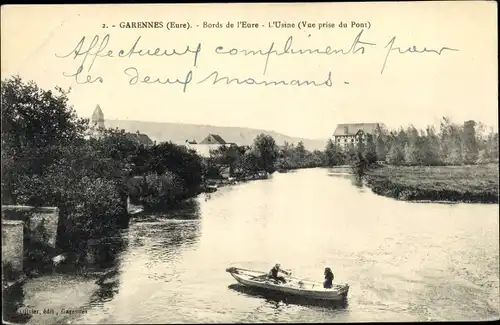 2. - GARENNES (Eure). - Bords de l'Eure - L'Usine (Vue prise du Pont)
Affectueux compliments pour
les deux mamans.
édit., Garennes